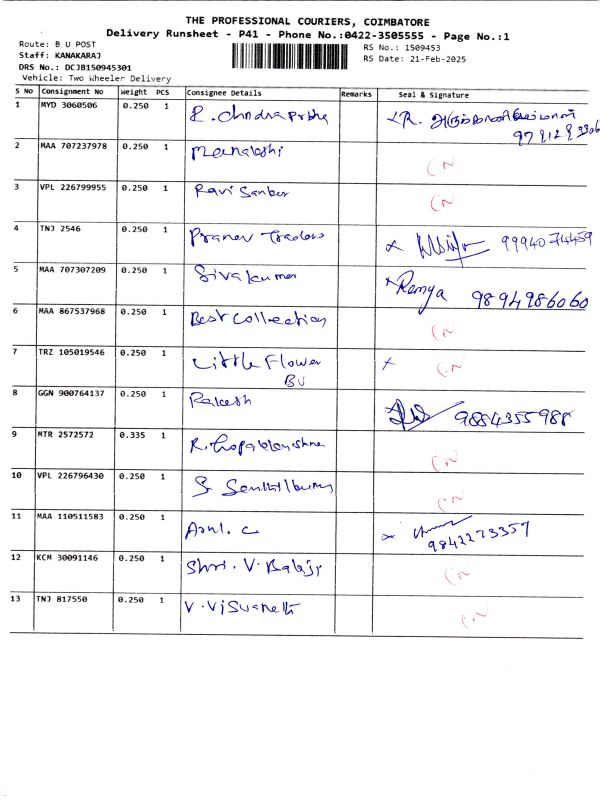 THE PROFESSIONAL COURIERS, COIMBATORE
Delivery Runsheet - P41 - Phone No.:0422-3505555 - Page No.:1
Route: B U POST
RS No.: 1509453
Staff: KANAKARAJ
RS Date: 21-Feb-2025
DRS No.: DCJB150945301
Vehicle: Two Wheeler Delivery
S No Consignment No Weight PCS Consignee Details Remarks Seal & Signature
1 MYD 3060506 0.250 1 R. Chndraprbha R.
2 MAA 707237978 0.250 1 Meenakshi CN
3 VPL 226799955 0.250 1 Ravi Sankar CN
4 TNJ 2546 0.250 1 Pranev Traders x 9994074459
5 MAA 707307209 0.250 1 Sivakumar x Remya 9894986060
6 MAA 867537968 0.250 1 Best Collection CN
7 TRZ 105019546 0.250 1 Little Flower x CN
BU
8 GGN 900764137 0.250 1 Rakesh 9884355988
9 MTR 2572572 0.335 1 R. Gopalakrishnan CN
10 VPL 226796430 0.250 1 S. Senthilkumar CN
11 MAA 110511583 0.250 1 Arul. C x
9842273357
12 KCM 30091146 0.250 1 Shri. V. Balaji CN
13 TNJ 817550 0.250 1 V. Visvaneth CN